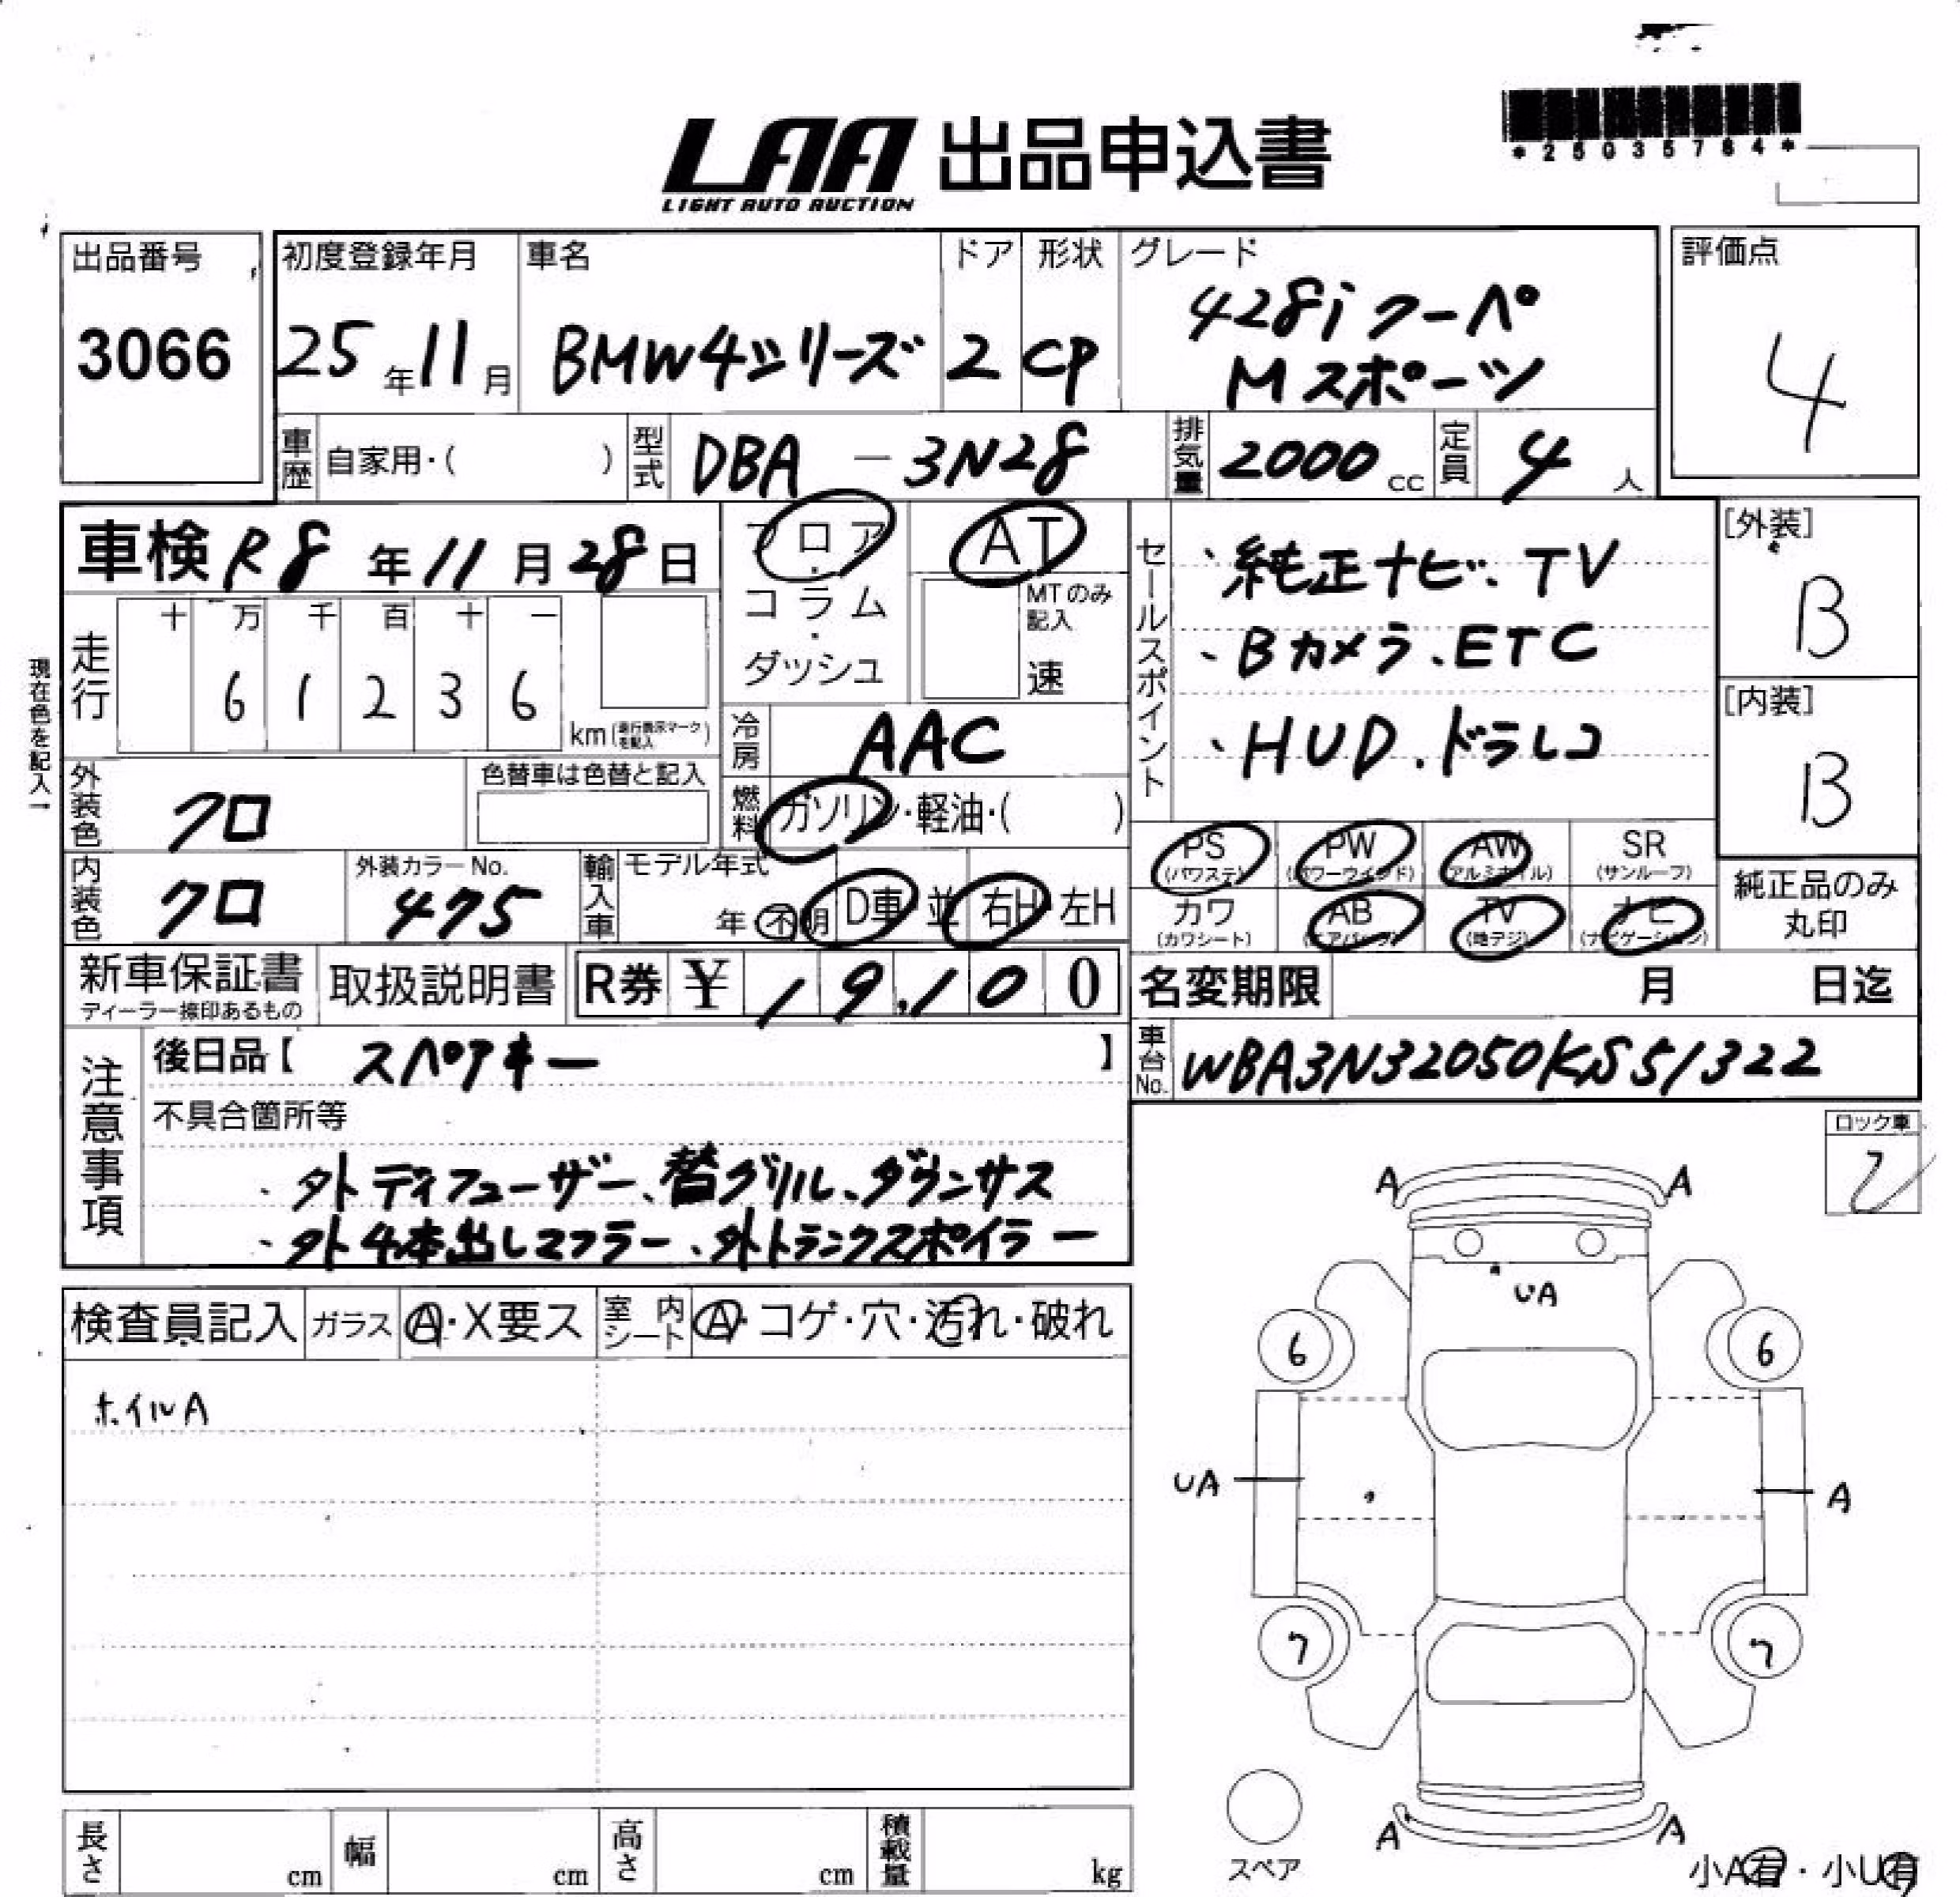 *25035784*
LAA 出品申込書
LIGHT AUTO AUCTION
出品番号
3066
初度登録年月
25年11月
車名
BMW4シリーズ
ドア
2
形状
CP
グレード
428i クーペ
Mスポーツ
評価点
4
車歴 自家用・( )
型式 DBA - 3N28
排気量 2000 cc
定員 4 人
車検 R8年11月28日
フロア・コラム・ダッシュ
AT
MTのみ記入
速
セールスポイント
、純正ナビ、TV
、Bカメラ、ETC
、HUD、ドラレコ
[外装]
B
[内装]
B
現在色を記入→
走行
十 万 千 百 十 一
6 1 2 3 6
km(走行表示マークを記入)
冷房 AAC
燃料 ガソリン・軽油・( )
外装色 クロ
色替車は色替と記入
内装色 クロ
外装カラーNo.
475
輸入車 モデル年式
年 不明 D車 並 右H・左H
PS (パワステ)
PW (パワーウインド)
AW (アルミホイル)
SR (サンルーフ)
カワ (カワシート)
AB (エアバッグ)
TV (地デジ)
ナビ (ナビゲーション)
純正品のみ
丸印
新車保証書
ディーラー捺印あるもの
取扱説明書
R券 ¥ 19,100
名変期限 月 日迄
注意事項
後日品【 スペアキー 】
車台No. WBA3N32050KS51322
不具合箇所等
・外ディフューザー、替グリル、ダウンサス
・外4本出しマフラー、外トランクスポイラー
ロック車
検査員記入
ガラス A・X要ス
室内シート A・コゲ・穴・汚れ・破れ
ホイルA
A A
UA
6 6
UA A
7 7
A A
スペア
小A有・小U有
長さ cm
幅 cm
高さ cm
積載量 kg